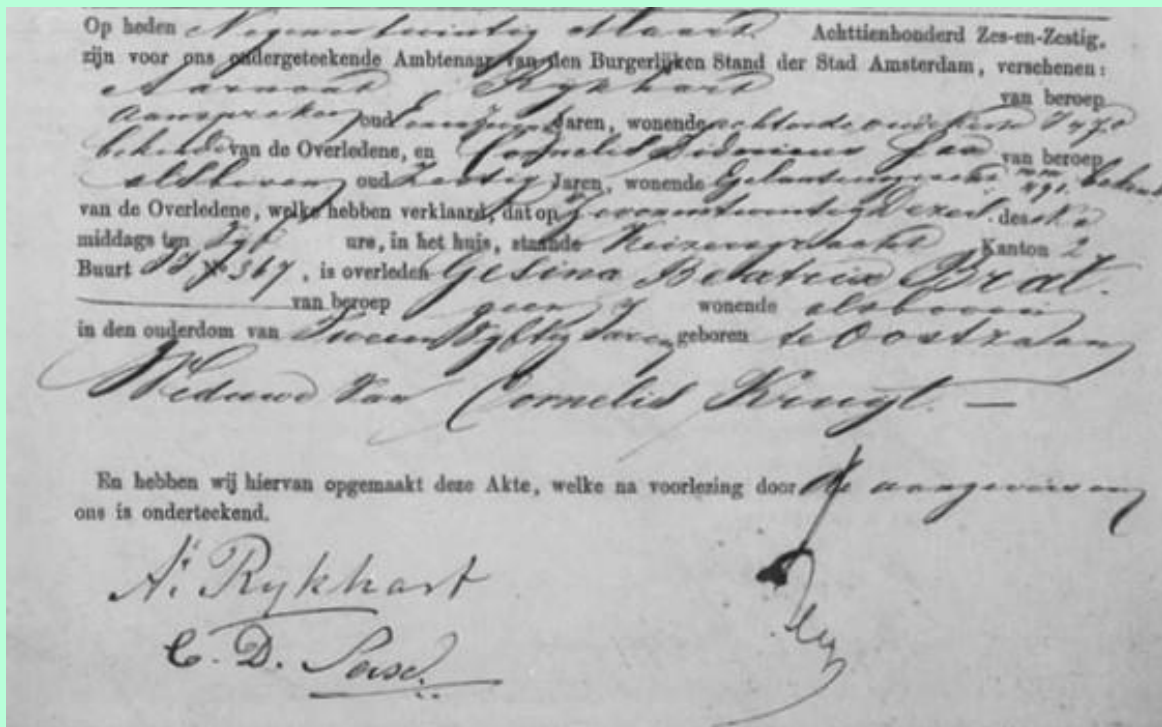 Op heden Negenentwintig Maart Achttienhonderd Zes-en-Zestig,
zijn voor ons ondergeteekende Ambtenaar van den Burgerlijken Stand der Stad Amsterdam, verschenen:
Aarnout Rykhart van beroep
Aanspreker oud Jaren, wonende achter de oude kerk
bekende van de Overledene, en Cornelis van beroep
alsboven oud Zestig Jaren, wonende bekende
van de Overledene, welke hebben verklaard, dat op Zevenentwintig dezer des
middags ten Vyf ure, in het huis, staande Keizersgracht Kanton 2
Buurt No 367, is overleden Gesina Beatrix Brat.
van beroep geen wonende alsboven
in den ouderdom van Tweeenvyftig Jaren geboren te Oostzaan
Weduwe van Cornelis
En hebben wij hiervan opgemaakt deze Akte, welke na voorlezing door de aangevers en
ons is onderteekend.
A: Rykhart
C. D.